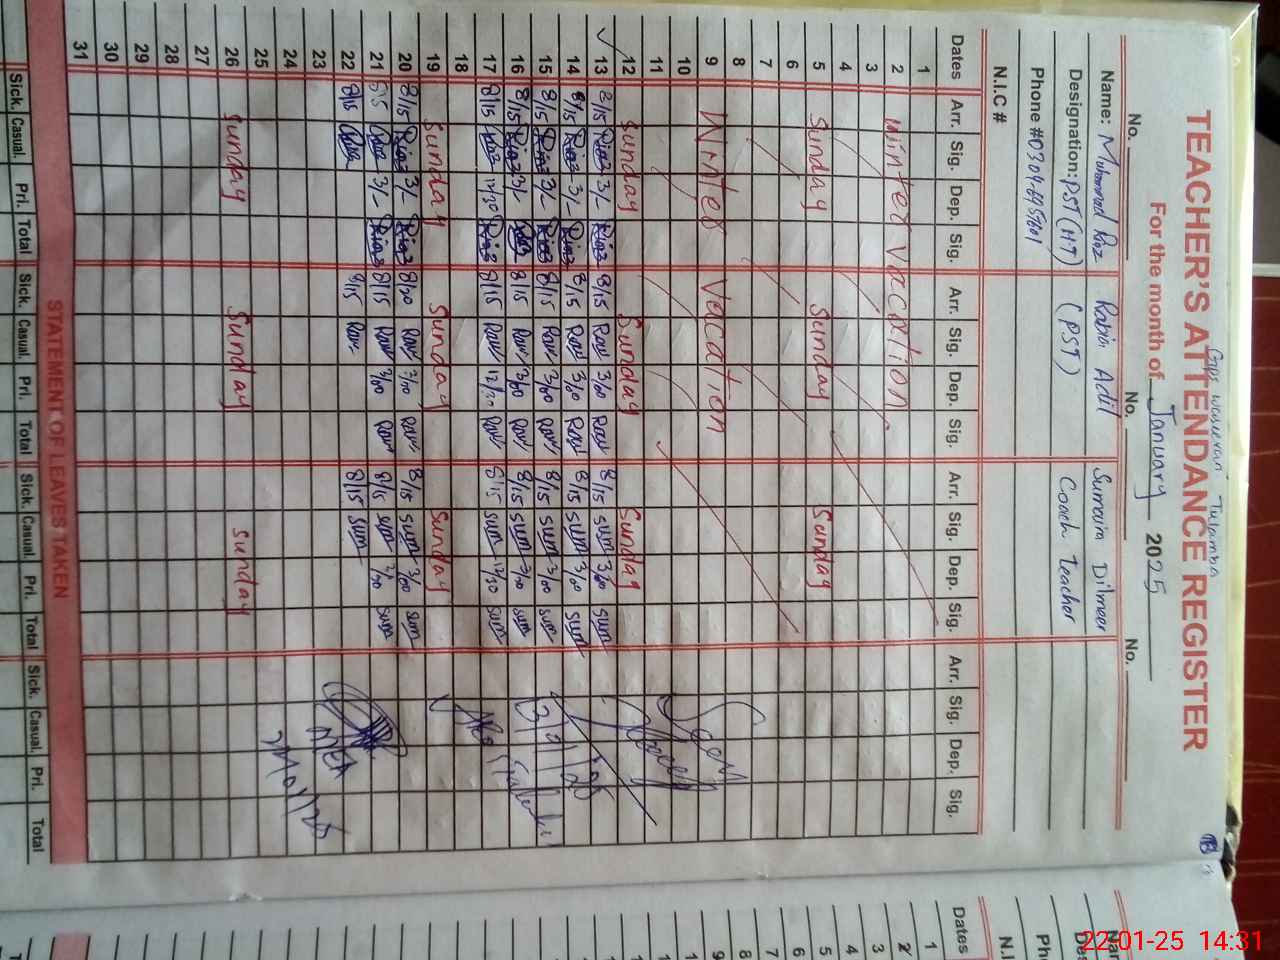 TEACHER'S ATTENDANCE REGISTER
Tulamba
For the month of January 2025
No. No. No.
Name: Muhammad Riaz Rabia Adil Sumaira Dilmeer
Designation: PST (HT) (PST) Coach Teacher
Phone #
N.I.C #
Dates Arr. Sig. Dep. Sig. Arr. Sig. Dep. Sig. Arr. Sig. Dep. Sig. Arr. Sig. Dep. Sig.
1
2 Winter Vacation
3
4
5 Sunday Sunday Sunday
6
7
8
9 Winter Vacation
10
11
12 Sunday Sunday Sunday
13 8/15 Riaz 3/- Riaz 8/15 Raw 3/00 Raw 8/15 sum 3/00 sum
14 8/15 Riaz 3/- Riaz 8/15 Raw 3/00 Raw 8/15 sum 3/00 sum
15 8/15 Riaz 3/- Riaz 8/15 Raw 3/00 Raw 8/15 sum 3/00 sum
16 8/15 Riaz 3/- Riaz 8/15 Raw 3/00 Raw 8/15 sum 3/00 sum
17 8/15 Riaz 12/30 Riaz 8/15 Raw 12/30 Raw 8/15 sum 12/30 sum
18
19 Sunday Sunday Sunday
20 8/15 Riaz 3/- Riaz 8/00 Raw 3/00 Raw 8/15 sum 3/00 sum
21 8/15 Riaz 3/- Riaz 8/15 Raw 3/00 Raw 8/15 sum 3/00 sum
22 8/15 Riaz 8/15 Raw 8/15 sum
23
24
25
26 Sunday Sunday Sunday
27
28
29
30
31
STATEMENT OF LEAVES TAKEN
Sick. Casual. Pri. Total Sick. Casual. Pri. Total Sick. Casual. Pri. Total Sick. Casual. Pri. Total
Dates
1
2
3
4
5
6
7
8
22-01-25 14:31